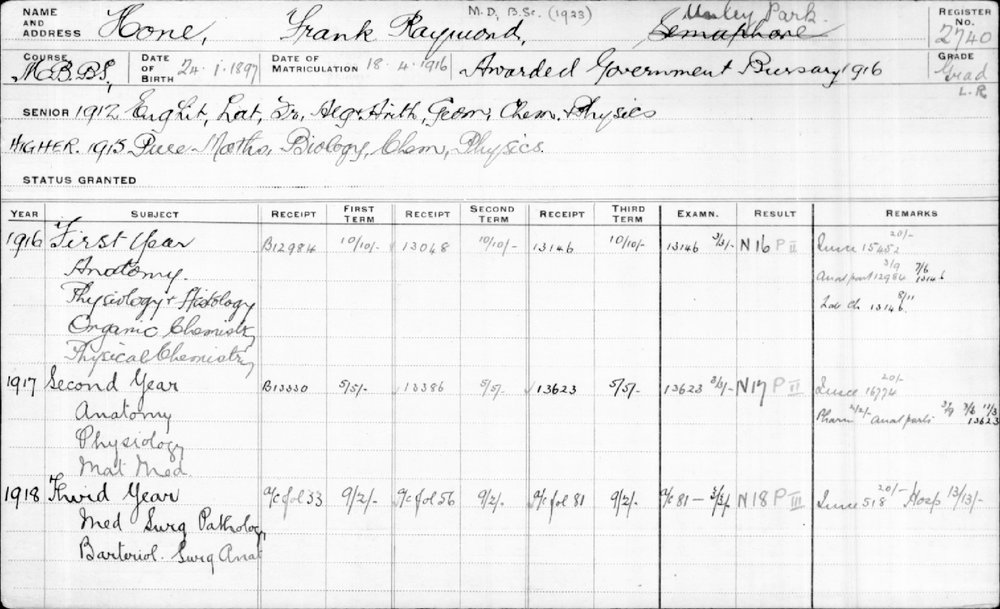 M.D., B.Sc. (1923) Unley Park.
NAME AND ADDRESS Hone, Frank Raymond, Semaphore REGISTER No. 2740
COURSE M.B.B.S, DATE OF BIRTH 24.1.1897 DATE OF MATRICULATION 18.4.1916 Awarded Government Bursary 1916 GRADE Grad
L.R.
SENIOR 1912 Eng Lit, Lat, Fr, Alg, Arith, Geom, Chem, + Physics
HIGHER. 1915 Pure Maths, Biology, Chem, Physics.
STATUS GRANTED
YEAR SUBJECT RECEIPT FIRST TERM RECEIPT SECOND TERM RECEIPT THIRD TERM EXAMN. RESULT REMARKS
1916 First Year B12984 10/10/- 13048 10/10/- 13146 10/10/- 13146 3/3/- N16 P II 20/- 15452
Anatomy. Anat part 12984 3/9 7/6 13146
Physiology + Histology 13146 8/11
Organic Chemistry
Physical Chemistry
1917 Second Year B13330 5/5/- 13386 5/5/- 13623 5/5/- 13623 3/3/- N17 P II 20/- 16774
Anatomy Pharm 2/2/- Anat parts 3/9 7/6 11/3 13623
Physiology
Mat Med
1918 Third Year a/c fol 33 9/2/- a/c fol 56 9/2/- a/c fol 81 9/2/- a/c 81 - 3/3/- N18 P III 518 20/- Hosp 13/13/-
Med Surg Pathology
Bacteriol. Surg Anat